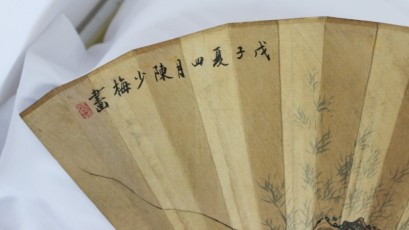 戊子夏四月陳少梅畫